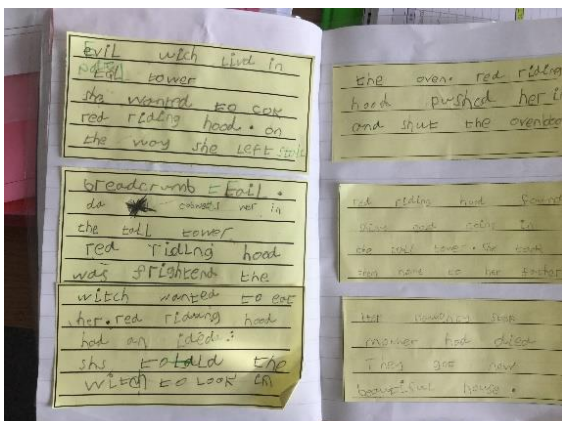 Evil wich lived in
tower
she wanted to cok
red riding hood. on
the way she left
breadcrumb tail.
in
the tall tower
red riding hood
was frightend the
witch wanted to eat
her. red riduing hood
had an idea:
she told the
witch to look in
the oven. red riding
hood pushed her in
and shut the ovendoo
red riding hood found
gold coins in
the tall tower. she took
them to her
mother had died
They got new
beautiful house.